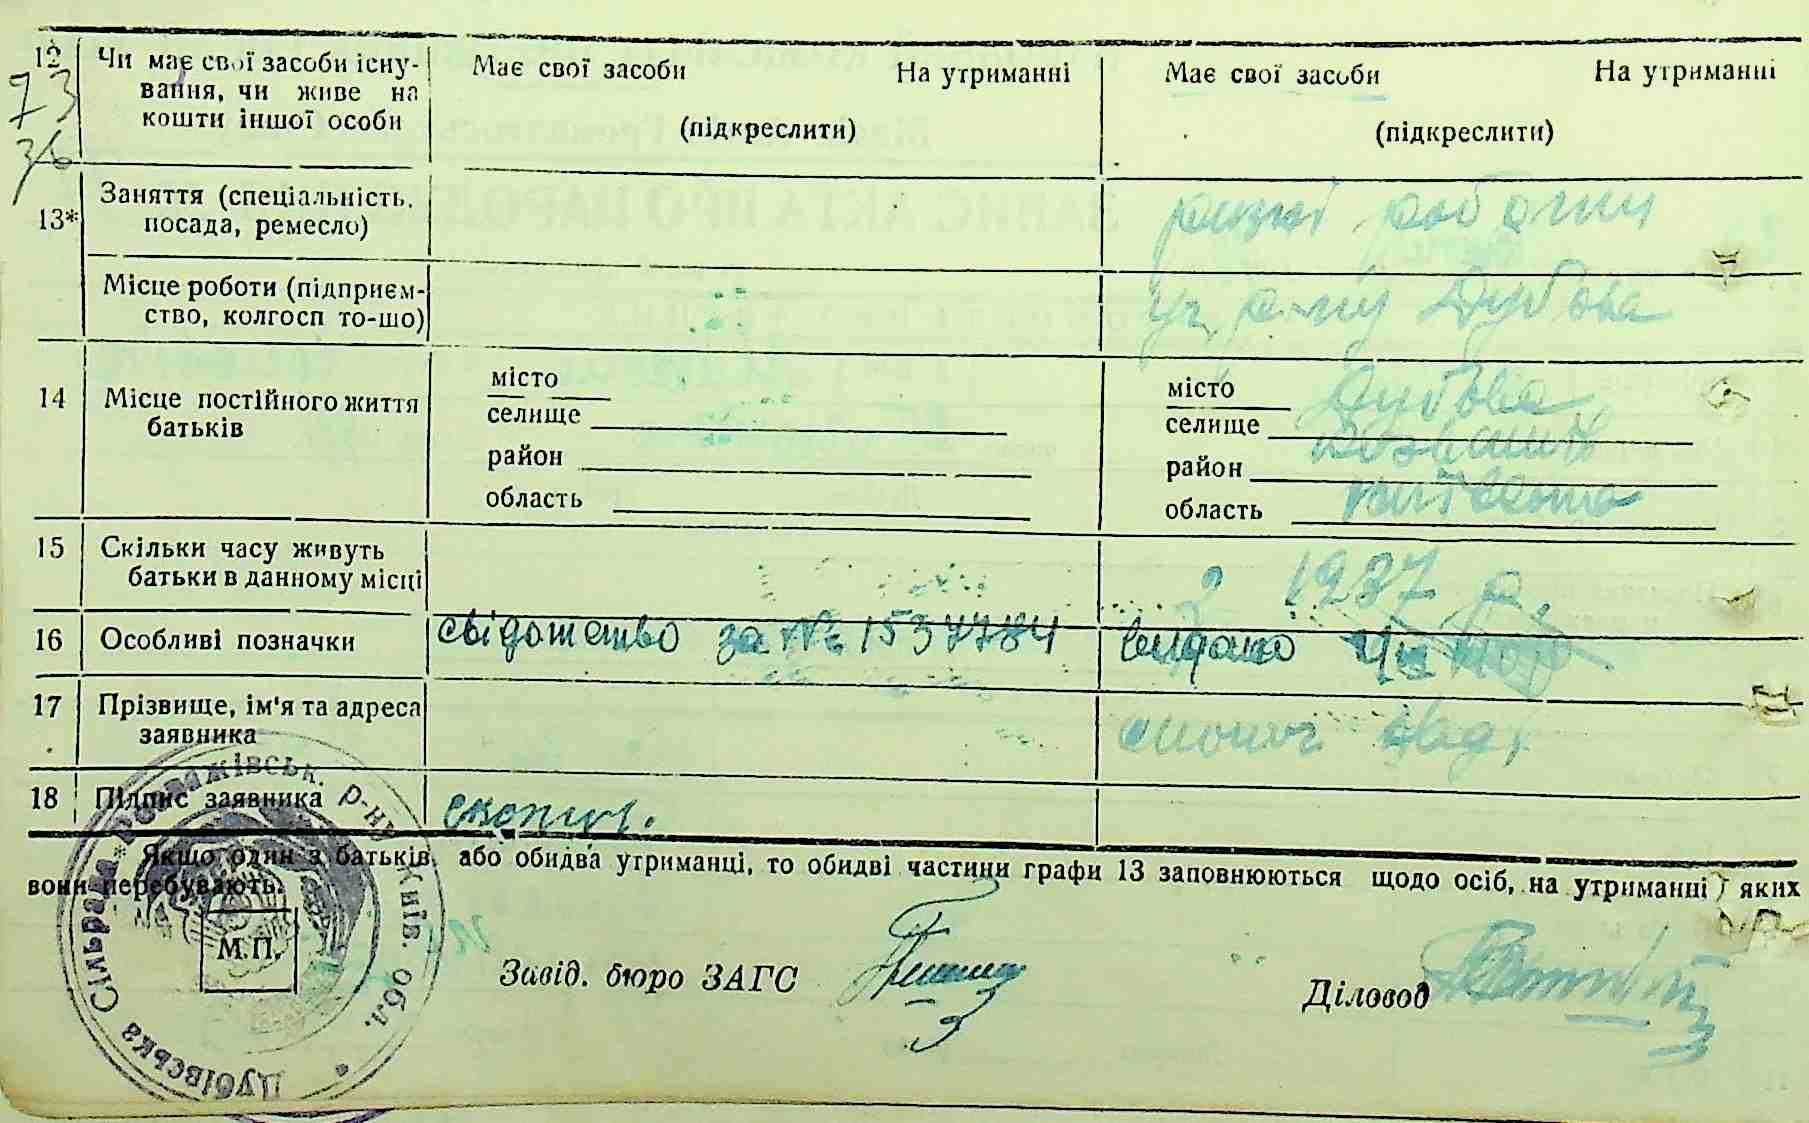 12 Чи має свої засоби існу-
вання, чи живе на
кошти іншої особи
Має свої засоби На утриманні
(підкреслити)
Має свої засоби На утриманні
(підкреслити)
73
36
13* Заняття (спеціальність,
посада, ремесло)
різні роботи
Місце роботи (підприєм-
ство, колгосп то-що)
Дубова
14 Місце постійного життя
батьків
місто
селище
район
область
місто Дубова
селище
район
область
15 Скільки часу живуть
батьки в данному місці
1937 р.
16 Особливі позначки
свідоцтво за № 1537784 видано
17 Прізвище, ім'я та адреса
заявника
18 Підпис заявника
*Якщо один з батьків, або обидва утриманці, то обидві частини графи 13 заповнюються щодо осіб, на утриманні яких
вони перебувають.
М.П.
Завід. бюро ЗАГС
Діловод
Дубівська Сільрада Розважівськ. р-ну Київ. Обл.